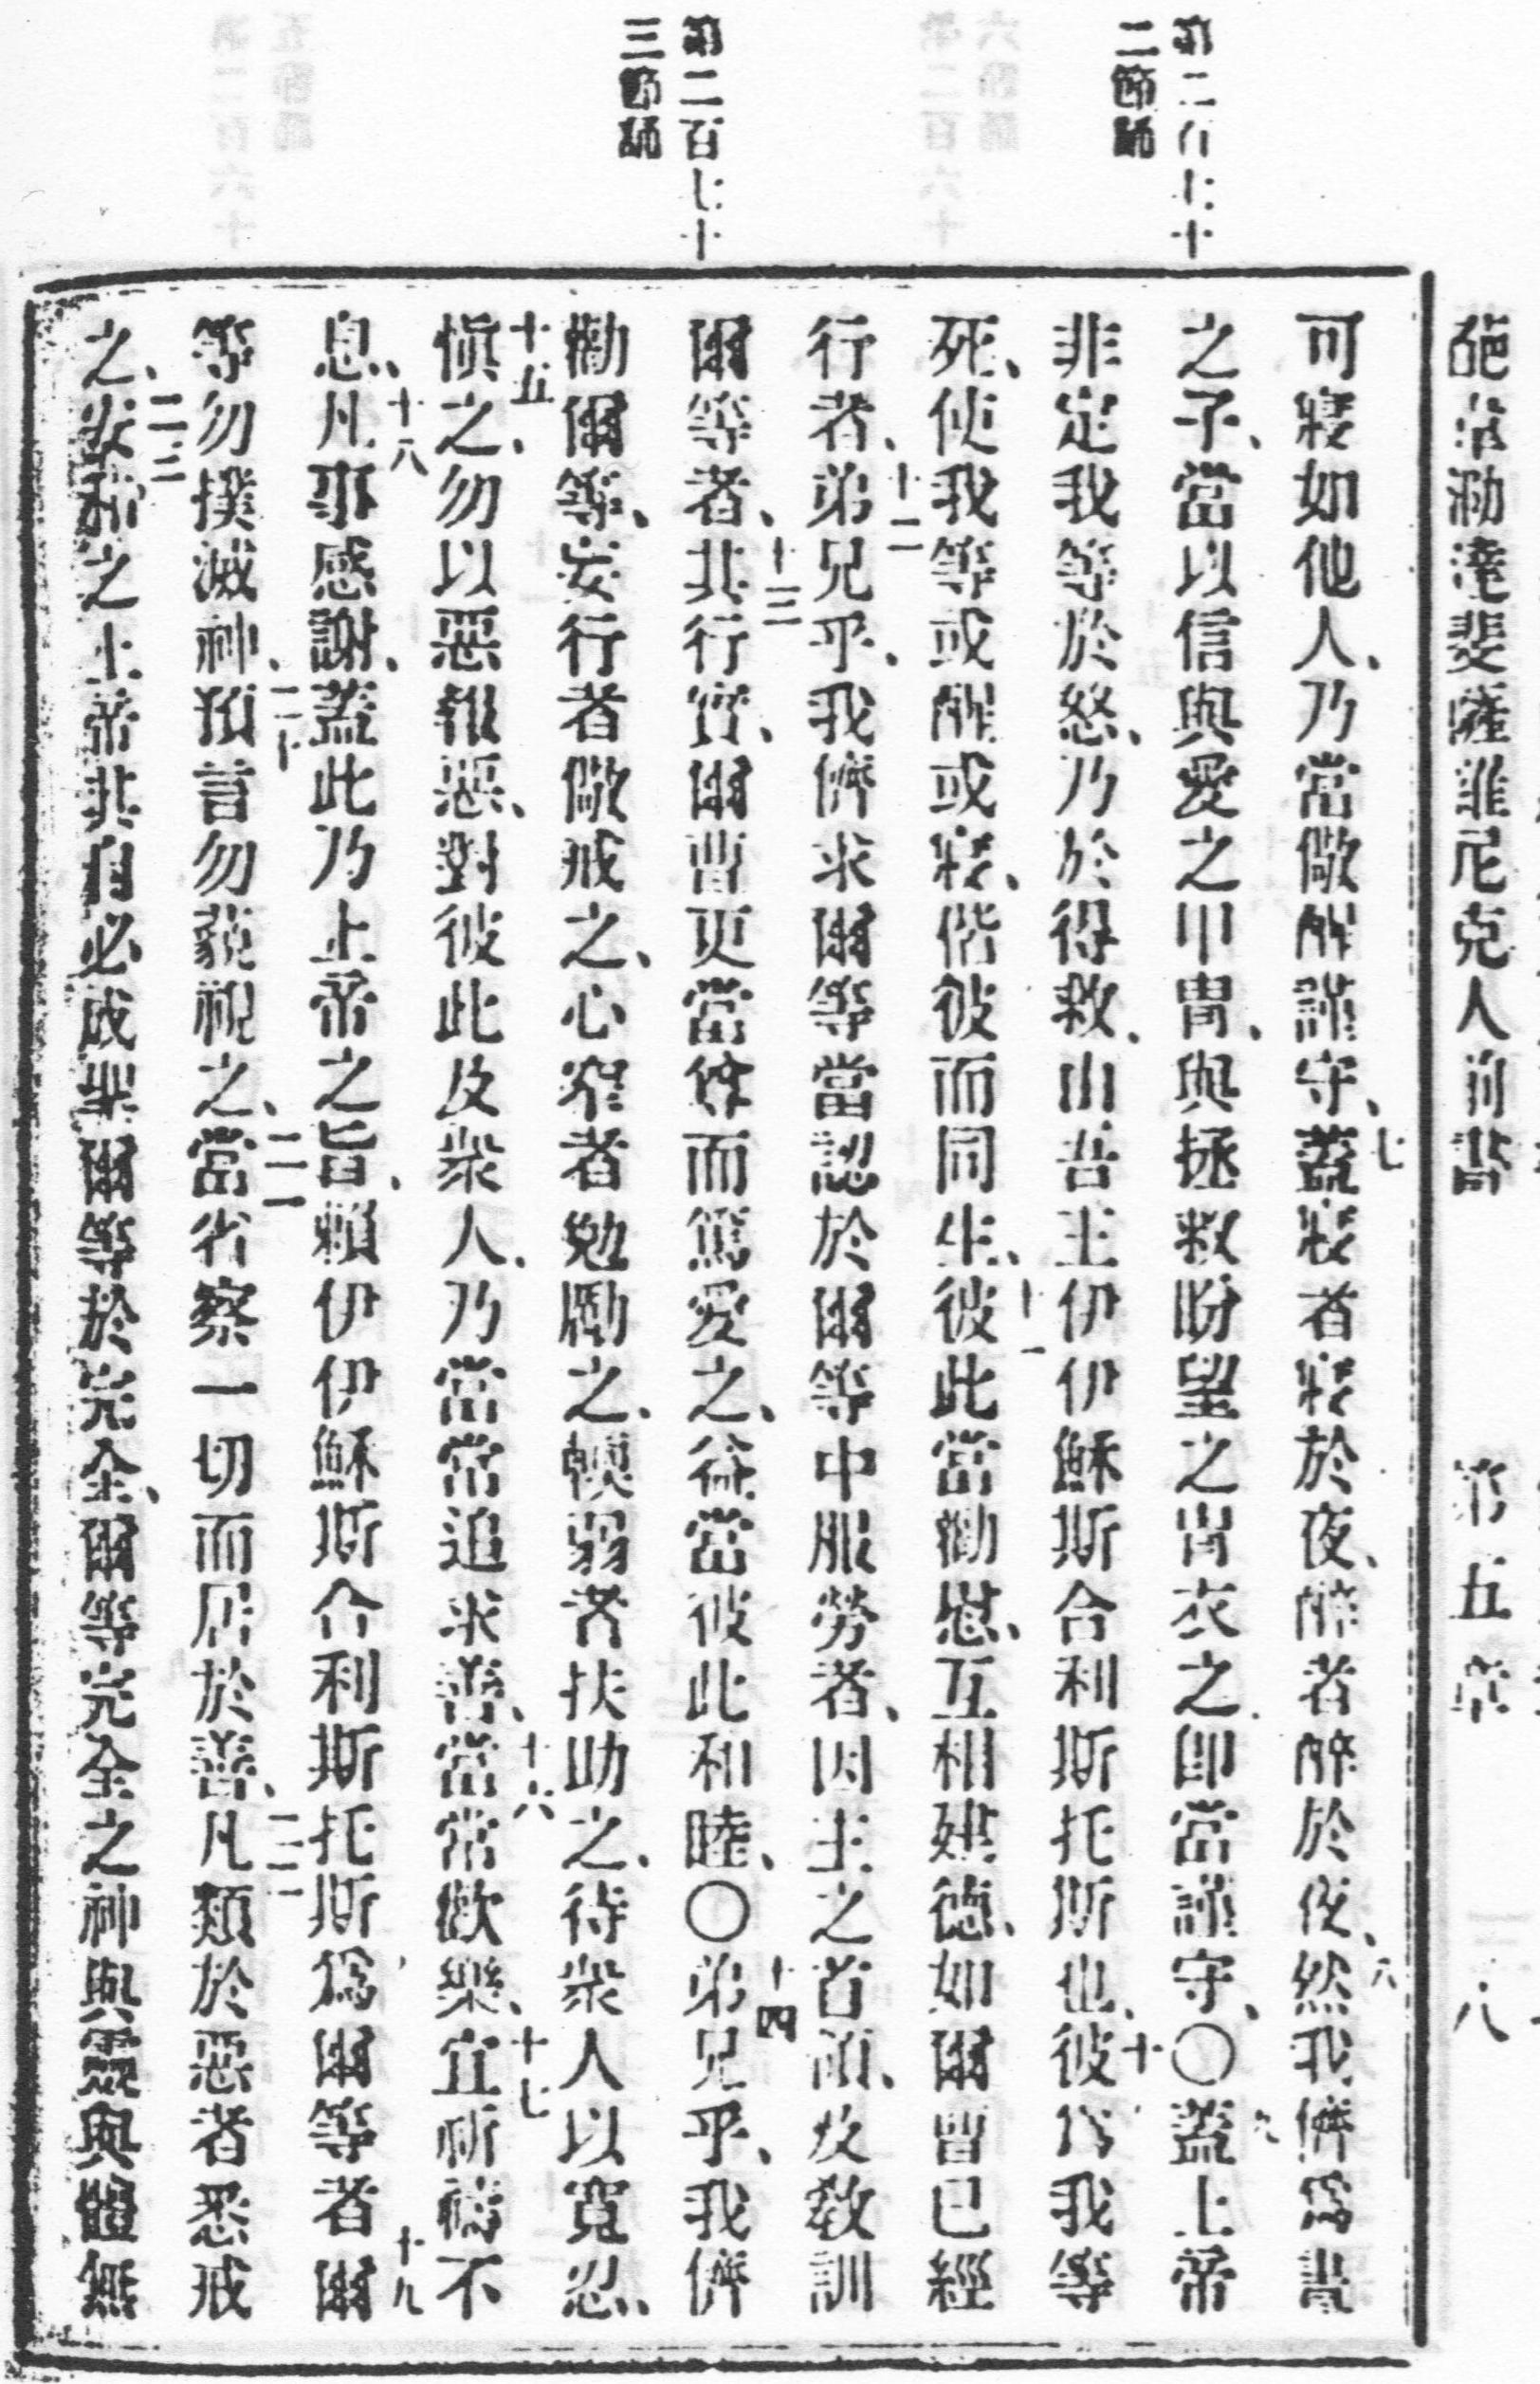 第二百七十
二節誦
第二百七十
三節誦
葩韋泐達斐薩羅尼克人前書 第五章 八
可寢如他人、乃當儆醒謹守、七蓋寢者寢於夜、醉者醉於夜、八然我儕爲晝
之子、當以信與愛之甲胄、與拯救盼望之冑衣之、卽當謹守、〇九蓋上帝
非定我等於怒、乃於得救、由吾主伊伊穌斯合利斯托斯也、十彼爲我等
死、使我等或醒或寢、偕彼而同生、十一彼此當勸慰、互相建德、如爾曹已經
行者、十二弟兄乎、我儕求爾等當認於爾等中服勞者、因主之首領、及敎訓
爾等者、十三其行實、爾曹更當體而篤愛之、益當彼此和睦、〇十四弟兄乎、我儕
勸爾等、妄行者儆戒之、心窄者勉勵之、輭弱者扶助之、待衆人以寬忍、
十五愼之、勿以惡報惡、對彼此及衆人、乃當常追求善、十六當常歡樂、十七宜祈禱不
息、十八凡事感謝、蓋此乃上帝之旨、賴伊伊穌斯合利斯托斯爲爾等者、十九爾
等勿撲滅神、二十預言勿藐視之、二一當省察一切而居於善、二二凡類於惡者悉戒
之、二三安和之上帝其自必成聖爾等於完全、爾等完全之神與靈與體無